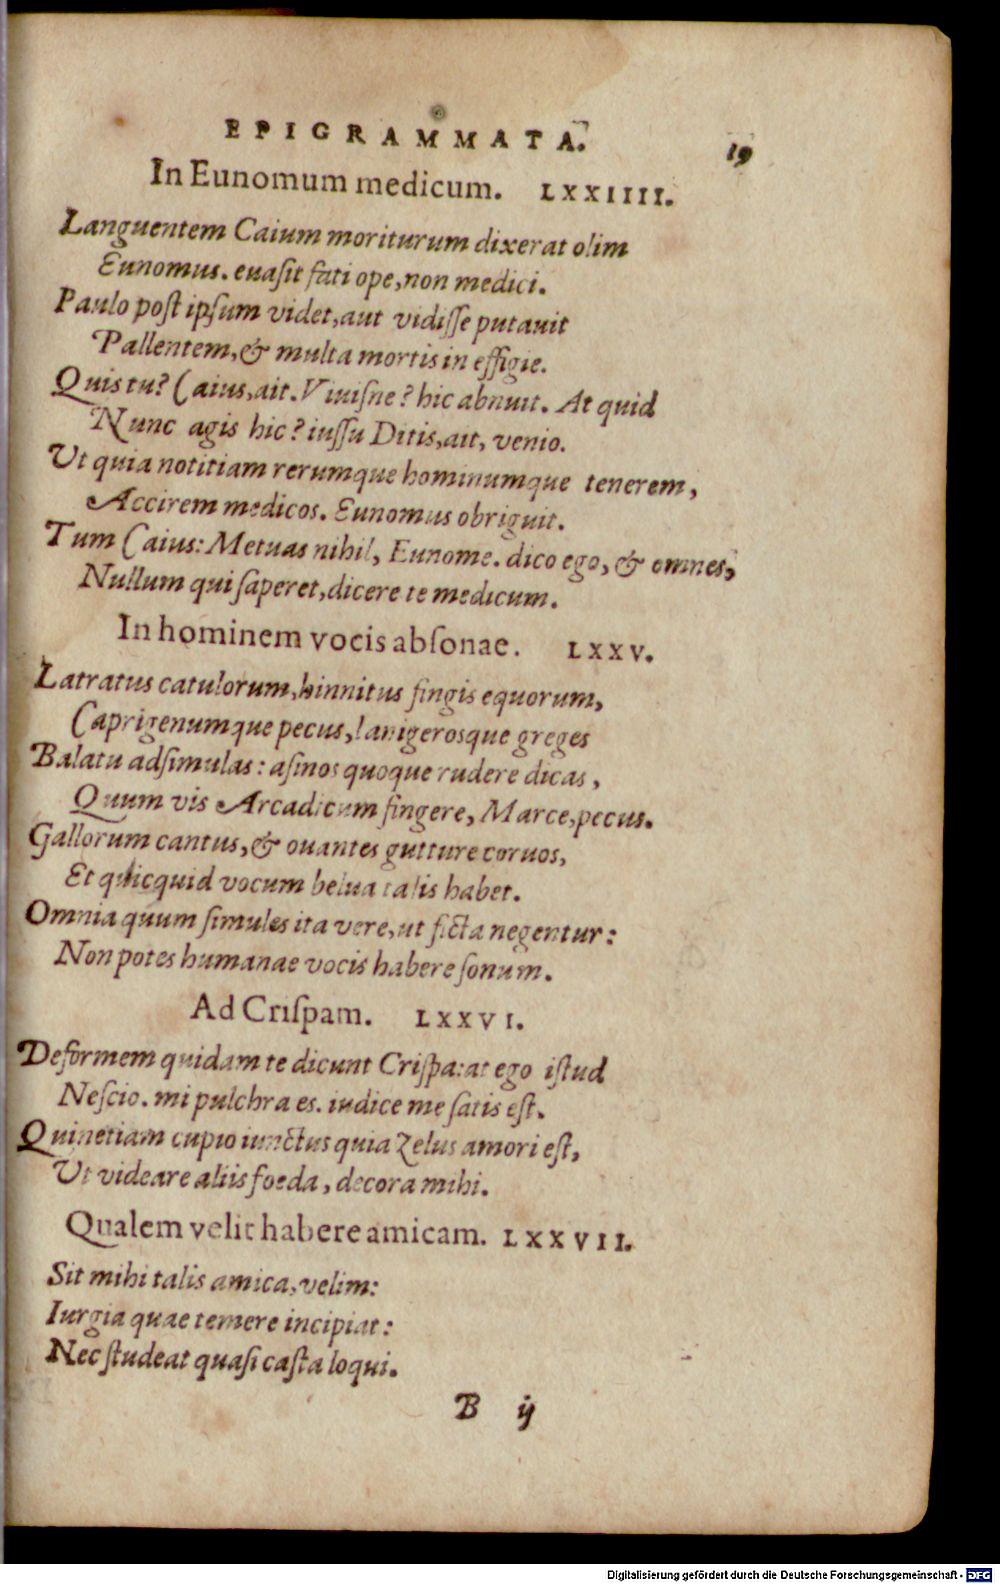 EPIGRAMMATA. 19
In Eunomum medicum. LXXIIII.
Languentem Caium moriturum dixerat olim
Eunomus. euasit fati ope, non medici.
Paulo poſt ipſum videt, aut vidiſſe putauit
Pallentem, & multa mortis in effigie.
Quis tu? Caius, ait. Viuiſne? hic abnuit. At quid
Nunc agis hic? iuſſu Ditis, ait, venio.
Ut quia notitiam rerumque hominumque tenerem,
Accirem medicos. Eunomus obriguit.
Tum Caius: Metuas nihil, Eunome. dico ego, & omnes,
Nullum qui ſaperet, dicere te medicum.
In hominem vocis abſonae. LXXV.
Latratus catulorum, hinnitus fingis equorum,
Caprigenumque pecus, lanigerosque greges
Balatu adſimulas: aſinos quoque rudere dicas,
Quum vis Arcadicum fingere, Marce, pecus.
Gallorum cantus, & ouantes gutture coruos,
Et quicquid vocum belua talis habet.
Omnia quum ſimules ita vere, ut ficta negentur:
Non potes humanae vocis habere ſonum.
Ad Criſpam. LXXVI.
Deformem quidam te dicunt Criſpa: at ego iſtud
Neſcio. mi pulchra es. iudice me ſatis eſt.
Quinetiam cupio iunctus quia zelus amori eſt,
Ut videare aliis foeda, decora mihi.
Qualem velit habere amicam. LXXVII.
Sit mihi talis amica, velim:
Iurgia quae temere incipiat:
Nec ſtudeat quaſi caſta loqui.
B ij
Digitalisierung gefördert durch die Deutsche Forschungsgemeinschaft - DFG